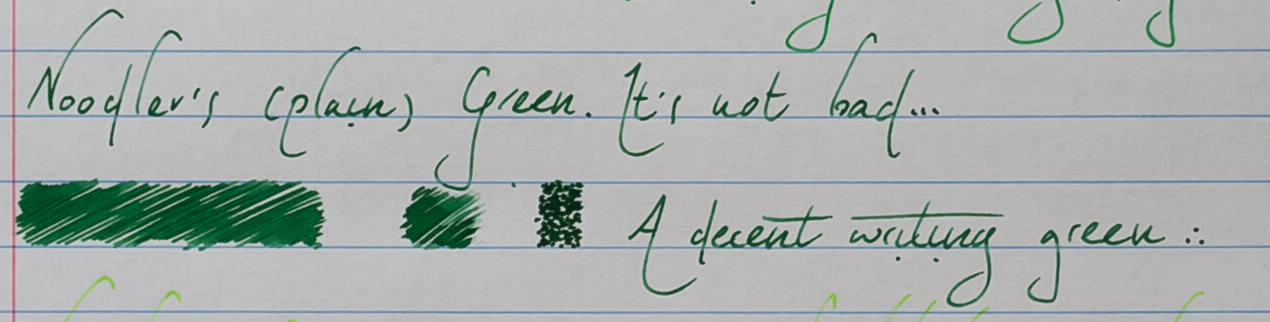 Noodler's (plain) Green. It's not bad...
A decent writing green :.